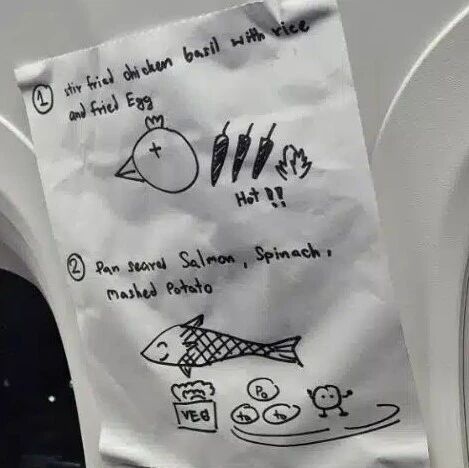 1 stir fried chicken basil with rice
and fried Egg
Hot !!
2 Pan seared Salmon, Spinach,
mashed Potato
VEG
Po
ta to